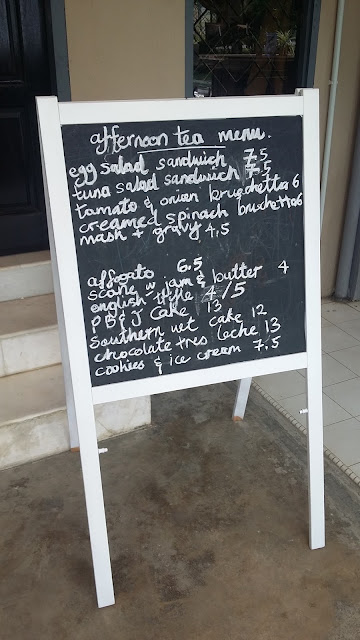 afternoon tea menu.
egg salad sandwich 7.5
tuna salad sandwich 7.5
tomato & onion bruschetta 6
creamed spinach bruschetta 6
mash + gravy 4.5
affogato 6.5
scone w jam & butter 4
english trifle 4/5
PB&J Cake 13
Southern vet cake 12
chocolate tres leche 13
cookies & ice cream 7.5